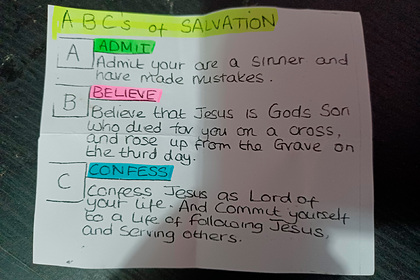 A B C's of SALVATION
A ADMIT
Admit your are a sinner and
have made mistakes.
B BELIEVE
Believe that Jesus is Gods Son
who died for you on a cross,
and rose up from the Grave on
the third day.
C CONFESS
Confess Jesus as Lord of
your life. And Commit yourself
to a life of following Jesus,
and serving others.